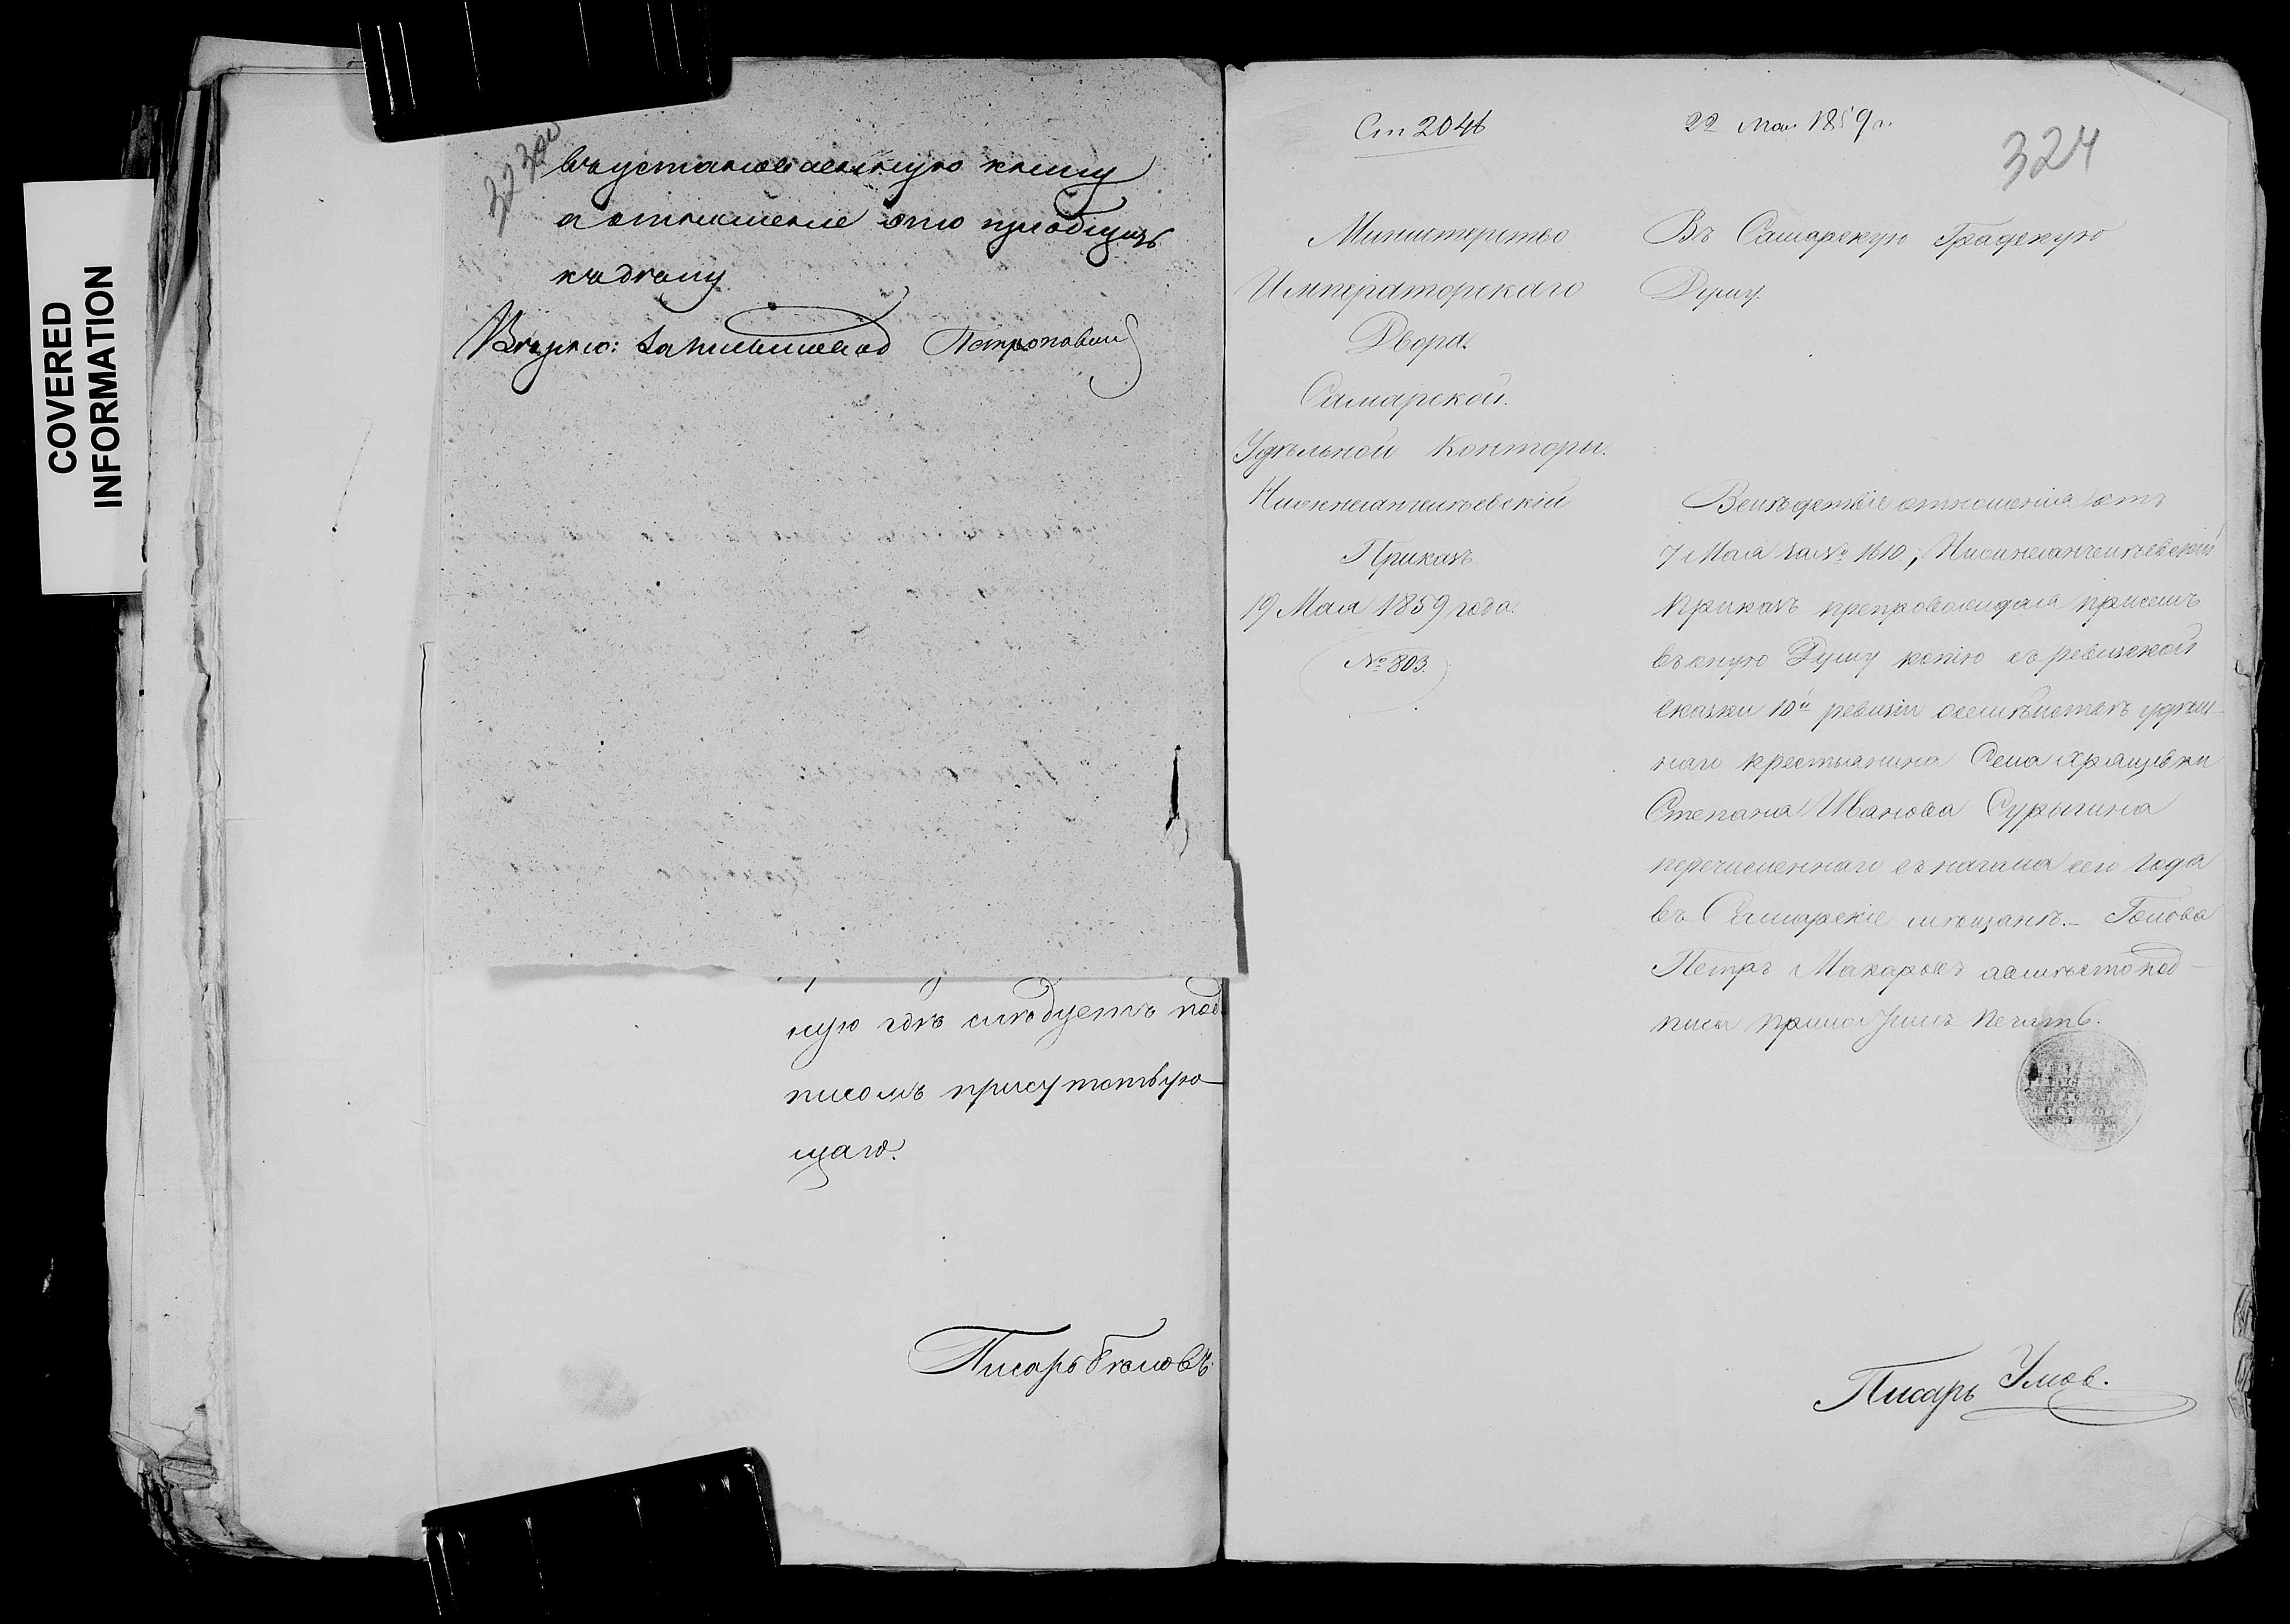 COVERED
INFORMATION
323 об
въ установленную книгу
а отношение это приобщить
къ делу
Петропавли
ную где следуетъ под
писомъ присутствую
щаго.
Писарь Беловъ.
Ст 2046
22 Мая 1859 г.
324
Министерство
Императорскаго
Двора.
Самарской
Удѣльной Конторы.
Нижнесанчелѣевскій
Приказъ
19 Мая 1859 года.
№ 803.
Въ Самарскую Градскую
Думу.
Вслѣдствіе отношенія отъ
7 Мая за № 1610, Нижнесанчелѣевскій
Приказъ препровождая при семъ
въ оную Думу копію съ ревизской
сказки 10й ревизіи о семѣйствѣ удѣль
наго крестьянина Села Хрящевки
Степана Иванова Сурыгина
перечисленнаго съ начала сего года
въ Самарскіе мѣщанѣ. Голова
Петръ Макаровъ а вмѣсто под-
писа приложилъ печать.
Писарь Умов.